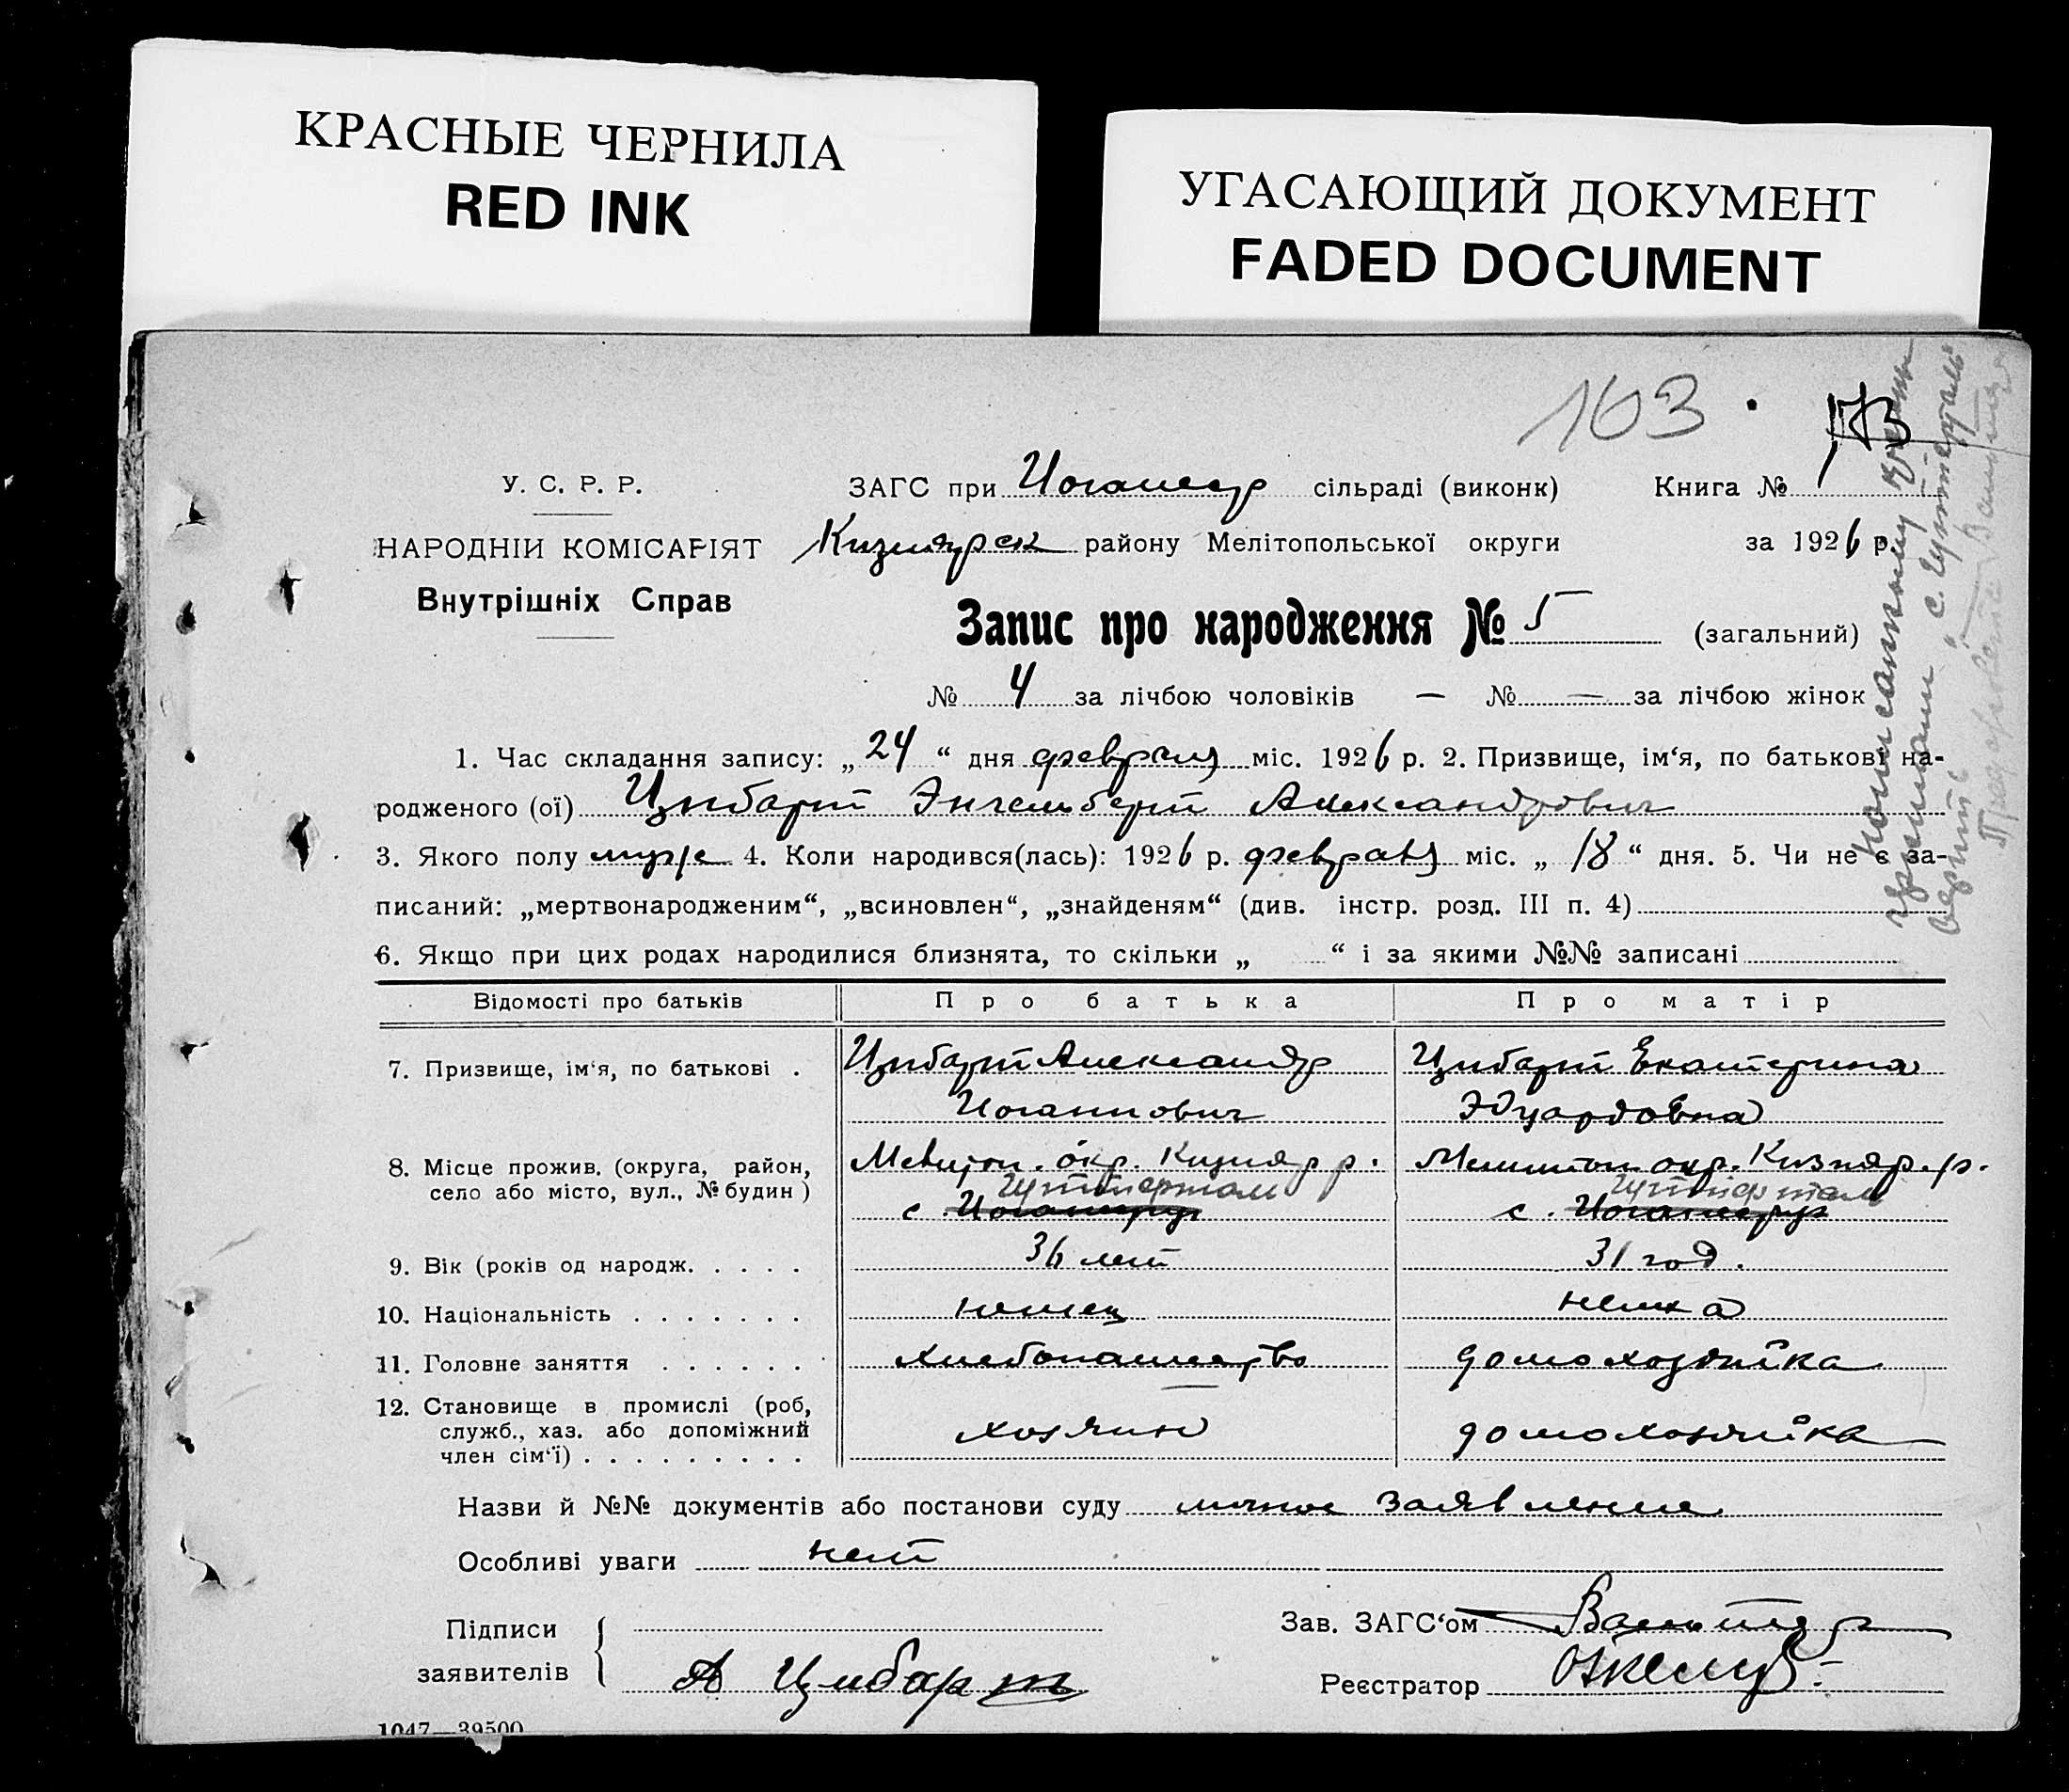 КРАСНЫЕ ЧЕРНИЛА
RED INK
УГАСАЮЩИЙ ДОКУМЕНТ
FADED DOCUMENT
103
У. С. Р. Р.
НАРОДНІЙ КОМІСАРІЯТ
Внутрішніх Справ
ЗАГС при Иоганесру сільраді (виконк) Книга № 1
Кизиярск району Мелітопольської округи за 1926 р.
Запис про народження № 5 (загальний)
№ 4 за лічбою чоловіків — № — за лічбою жінок
1. Час складання запису: „24“ дня февраля міс. 1926 р. 2. Призвище, ім‘я, по батькові на-
родженого (ої) Цибарт Энгельберт Александрович
3. Якого полу муж 4. Коли народився(лась): 1926 р. февраля міс. „18“ дня. 5. Чи не є за-
писаний: „мертвонародженим“, „всиновлен“, „знайденям“ (див. інстр. розд. III п. 4)
6. Якщо при цих родах народилися близнята, то скільки „ “ і за якими №№ записані
Відомості про батьків Про батька Про матір
7. Призвище, ім‘я, по батькові . Цибарт Александр Цибарт Екатерина
Иоганнович Эдуардовна
8. Місце прожив. (округа, район, Мелитоп. окр. Кизияр р. Мелитоп окр. Кизияр. р.
село або місто, вул., № будин) Гуттерталь Гуттерталь
с. Иоганесру с. Иоганесру
9. Вік (років од народж. . . . . 36 лет 31 год.
10. Національність . . . . . . . немец немка
11. Головне заняття . . . . . . хлебопашество домохозяйка
12. Становище в промислі (роб,
служб., хаз. або допоміжний хозяин домохозяйка
член сім‘ї) . . . . . . . . .
Назви й №№ документів або постанови суду личное заявление
Особливі уваги нет
Підписи
заявителів А Цибарт
Зав. ЗАГС‘ом Вальтер
Реєстратор
1047—39500